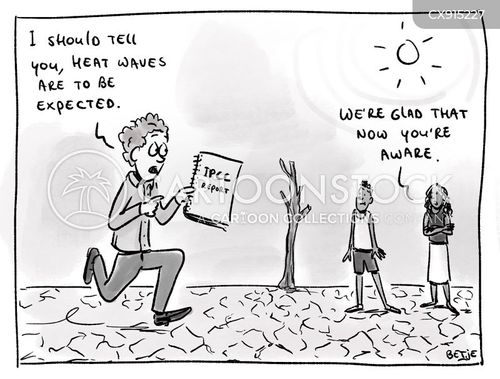 CX915227
I SHOULD TELL
YOU, HEAT WAVES
ARE TO BE
EXPECTED.
WE'RE GLAD THAT
NOW YOU'RE
AWARE.
IPCC
REPORT
CARTOONSTOCK
CARTOON COLLECTIONS.COM
BETJE